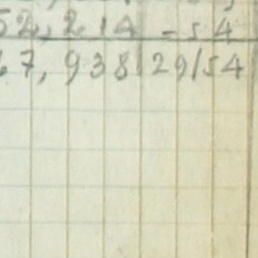 52,214 -54
67,938 29/54